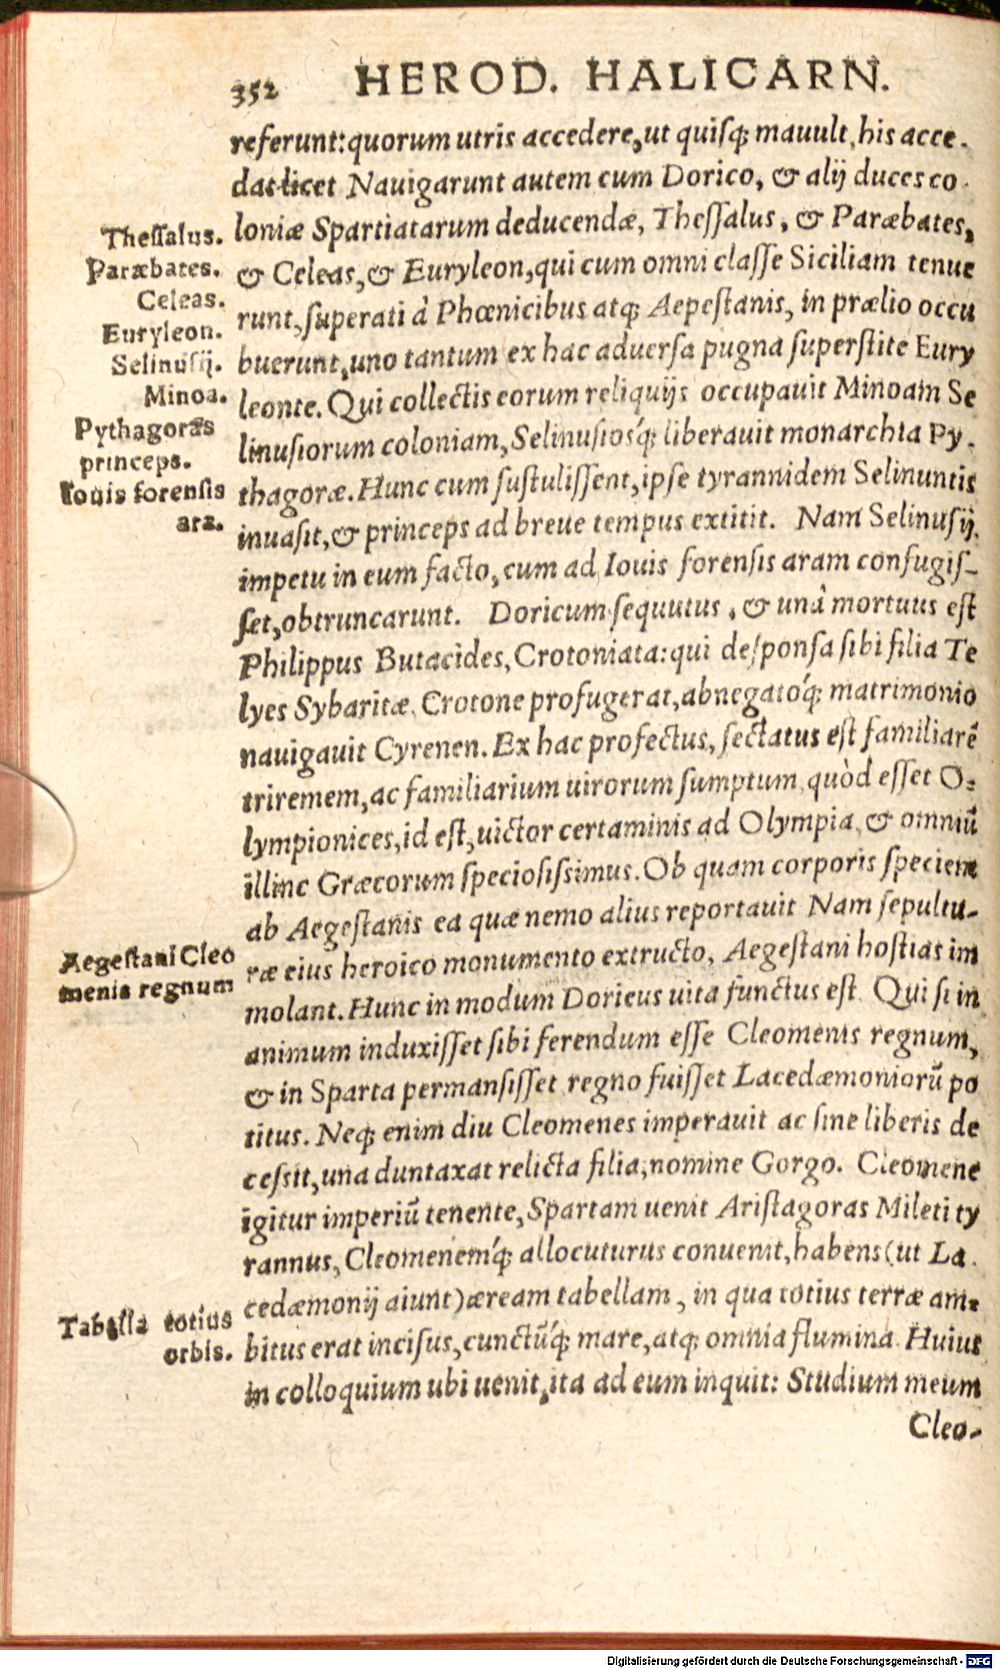 352 HEROD. HALICARN.
referunt: quorum utris accedere, ut quisq; mauult, his acce-
dat licet Nauigarunt autem cum Dorico, & alij duces co-
loniæ Spartiatarum deducendæ, Thessalus, & Paræbates,
& Celeas, & Euryleon, qui cum omni classe Siciliam tenue
runt, superati à Phœnicibus atq; Aepestanis, in prælio occu
buerunt, uno tantum ex hac aduersa pugna superstite Eury
leonte. Qui collectis eorum reliquijs occupauit Minoam Se
linusiorum coloniam, Selinusiosq́; liberauit monarchia Py-
thagoræ. Hunc cum sustulissent, ipse tyrannidem Selinuntis
inuasit, & princeps ad breue tempus extitit. Nam Selinusij
impetu in eum facto, cum ad Iouis forensis aram confugis-
set, obtruncarunt. Doricum sequutus, & unà mortuus est
Philippus Butacides, Crotoniata: qui desponsa sibi filia Te
lyes Sybaritæ Crotone profugerat, abnegatoq́; matrimonio
nauigauit Cyrenen. Ex hac profectus, sectatus est familiarē
triremem, ac familiarium uirorum sumptum, quòd esset O-
lympionices, id est, uictor certaminis ad Olympia, & omniū
illinc Græcorum speciosissimus. Ob quam corporis speciem
ab Aegestanis ea quæ nemo alius reportauit Nam sepultu-
ræ eius heroico monumento extructo, Aegestani hostias im
molant. Hunc in modum Dorieus uita functus est Qui si in
animum induxisset sibi ferendum esse Cleomenis regnum,
& in Sparta permansisset regno fuisset Lacedæmoniorū po
titus. Neq; enim diu Cleomenes imperauit ac sine liberis de
cessit, una duntaxat relicta filia, nomine Gorgo. Cleomene
igitur imperiū tenente, Spartam uenit Aristagoras Mileti ty
rannus, Cleomenemq́; allocuturus conuenit, habens (ut La-
cedæmonij aiunt) æream tabellam, in qua totius terræ am-
bitus erat incisus, cunctūq́; mare, atq; omnia flumina. Huius
in colloquium ubi uenit, ita ad eum inquit: Studium meum
Cleo-
Thessalus.
Paræbates.
Celeas.
Euryleon.
Selinusij.
Minoa.
Pythagoras
princeps.
Iouis forensis
ara.
Aegestani Cleo
menis regnum
Tabella totius
orbis.
Digitalisierung gefördert durch die Deutsche Forschungsgemeinschaft - DFG